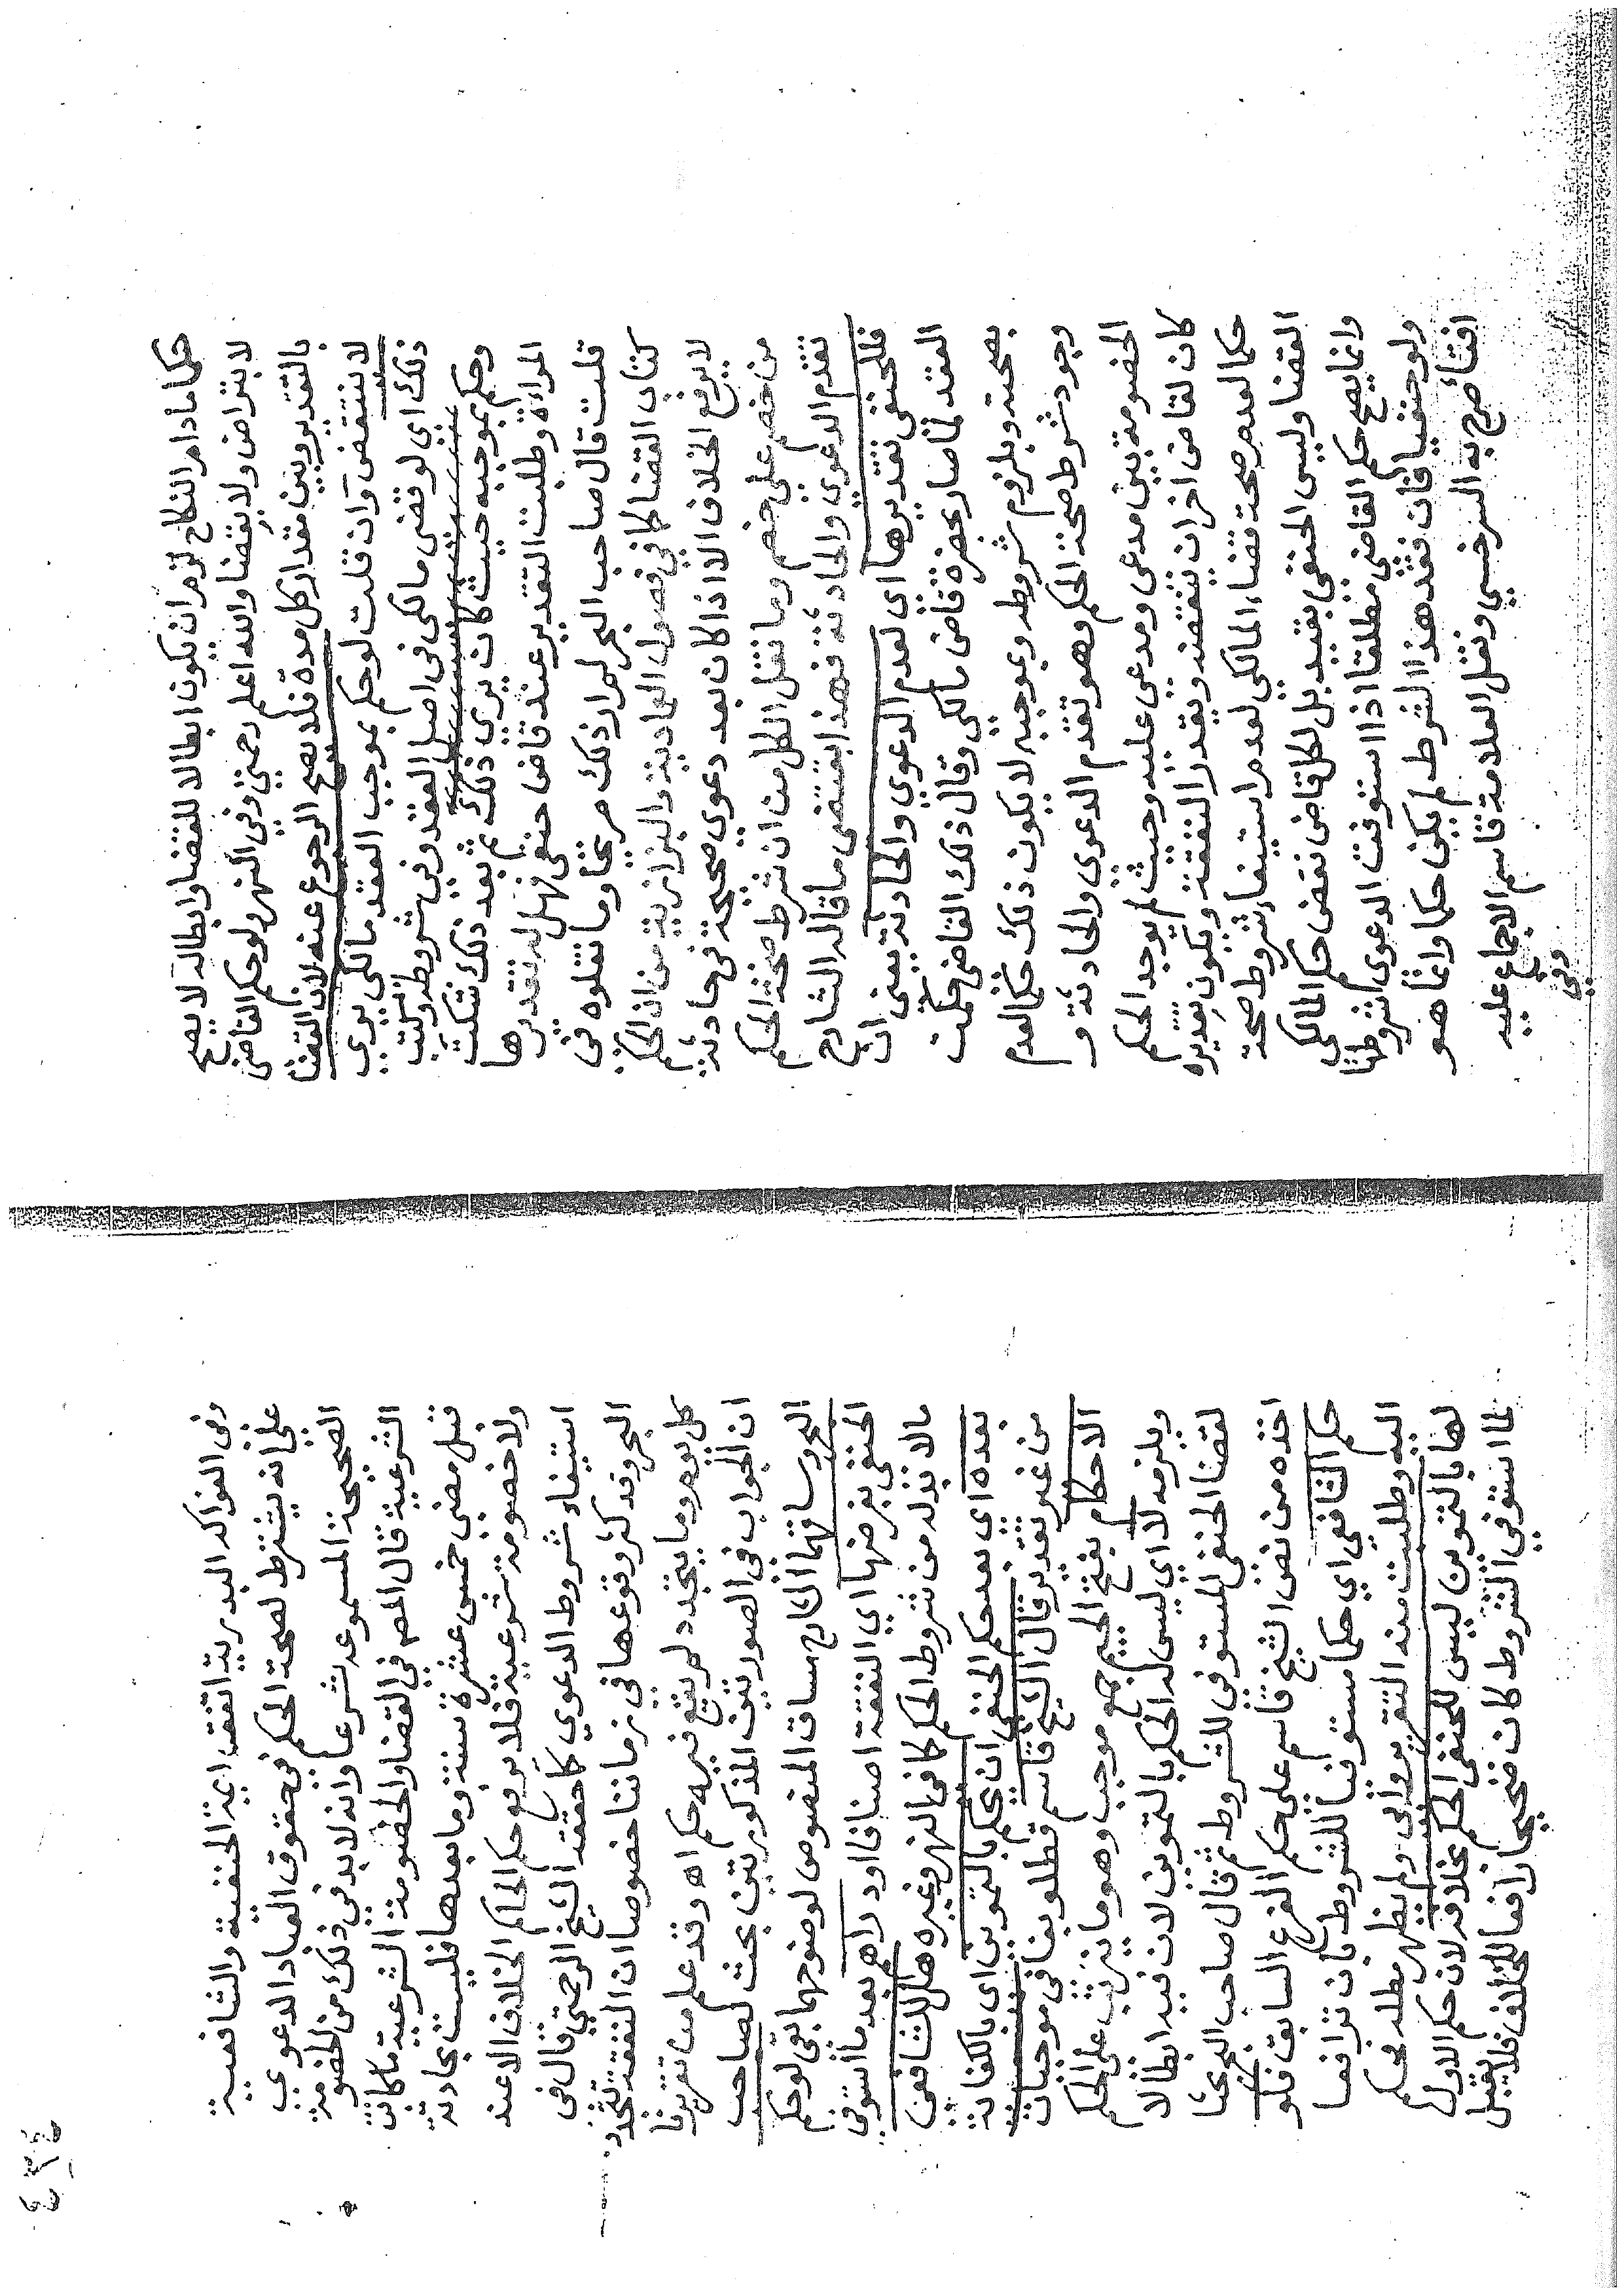 حكما ما دام النكاح لزم ان يكون ابطالا للقضا وابطاله لا يصح
لا بتراض ولا بقضا والله اعلم رحمتي وفي النهر ولو حكم القاضي
بالتقدير وبين مقدار كل مدة فلا يصح الرجوع عنه لان القضا
لا ينتقض وان قلت لو حكم بموجب العقد مالكي يري
ذلك اي لو قضى مالكي في اصل العقد وفي شروطه وكتب
وحكم بموجبه حيث كان يري ذلك ثم بعد ذلك شكت
المراة وطلبت التقدير عند قاض حنفي فهل له تقديرها
قلت قال صاحب البحر لم ار ذلك صريحا وما نقلوه في
كتاب القضا كما في فصول العمادية والبزازية من ان الحكم
لا يرفع الخلاف الا اذا كان بعد دعوي صحيحة في حادثة
من خصم على خصم وما نقل الكل من ان شرط صحة الحكم
تقدم الدعوي والحادثة فهذا يقتضى ما قاله الشارح
فللحنفي تقديرها اى لعدم الدعوي والحادثة يعني ان
العقد لما صار بحضرة قاض مالكي وقال ذلك القاضي حكمت
بصحته وبلزوم شروطه وبموجبه لا يكون ذلك حكما لعدم
وجود شروط صحة الحكم وهو تقدم الدعوي والحادثة و
الخصومة بين مدعى ومدعى عليه وحيث لم يوجد الحكم
كان لقاض اخر ان ينقضه ويقدر النفقة ويكون تقديره
حكما لعدم صحة قضاء المالكي لعدم استيفاء شروط صحة
القضا وليس الحنفي بقيد بل لكل قاض نقض حكم المالكي
وانما يصح حكم القاضي مطلقا اذا استوفت الدعوي شروطها
ولو حنفيا فان فقد هذا الشرط لم يكن حكما وانما هو
افتاء صرح به السرخسي ونقل العلامة قاسم الاجماع عليه
وفي
وفي الفواكه البدرية اتفق ايمة الحنفية والشافعية
على انه يشترط لصحة الحكم في حقوق العباد الدعوي
الصحيحة المسموعة شرعا وانه لا بد في ذلك من الخصومة
الشرعية قال المص في القضا والخصومة الشرعية ما كانت
قبل مضي خمس عشرة سنة وما بعدها فليست بحادثة
ولا خصومة شرعية فلا يرفع حكم الحاكم الخلاف الا عند
استيفاء شروط الدعوي كما حققه الشيخ الرحمتي قال في
البحر وقد كثر وقوعها في زماننا خصوصا ان النفقة تتجدد
كل يوم وما يتجدد لم يقع فيه حكم اه وقد علم من تقريرنا
ان الجواب في الصورتين المذكورتين بحث لصاحب
البحر وساقهما الشارح مساق المنصوص لوضوحهما بقي لو حكم
الحنفي بفرضها اي النفقة اصنافا او دراهم بعد ما استوفي
ما لا بد له من شروط الحكم كما في النهر وغيره هل للشافعي
بعده اي بعد حكم الحنفي ان يحكم بالتموين اى بالكفاية
من غير تقدير قال الشيخ قاسم قطلوبغا في موجبات
الاحكام بفتح الجيم جمع موجب وهو ما يترتب على الحكم
ويلزمه لا اي ليس له الحكم بالتموين لان فيه ابطالا
لقضا الحنفي المستوفي للشروط ثم قال صاحب البحر بحثا
اخذه من نص الشيخ قاسم على حكم الفرع السابق فلو
حكم الشافعي اي حكما مستوفيا للشروط بان ترافعا
اليه وطلبت منه التقرير وابي ولم يظهر مطله فحكم
لها بالتموين ليس للحنفي الحكم بخلافه لان حكم الاول
لما استوفي الشروط كان صحيحا رافعا للخلاف فلا يقبل